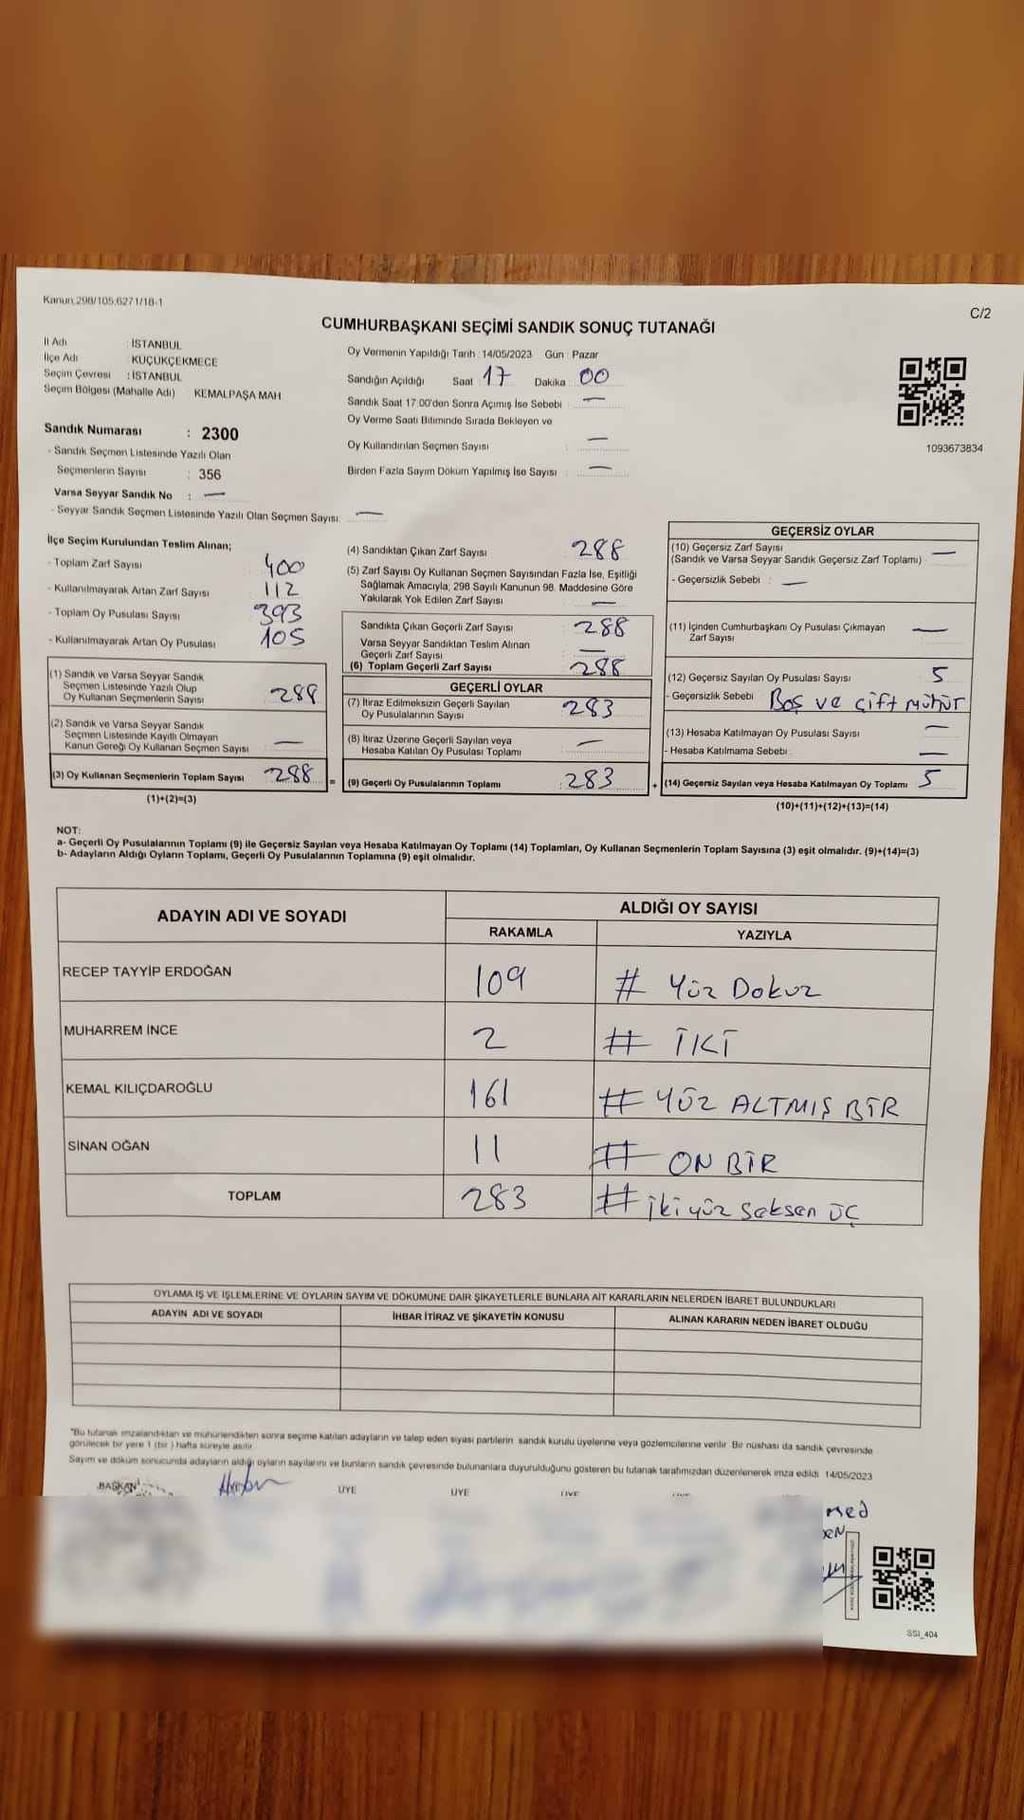 Kanun 298/105.6271/18-1
C/2
CUMHURBAŞKANI SEÇİMİ SANDIK SONUÇ TUTANAĞI
İl Adı : İSTANBUL
İlçe Adı : KÜÇÜKÇEKMECE
Seçim Çevresi : İSTANBUL
Seçim Bölgesi (Mahalle Adi) KEMALPAŞA MAH
Sandık Numarası : 2300
- Sandık Seçmen Listesinde Yazılı Olan
Seçmenlerin Sayısı : 356
Varsa Seyyar Sandık No : —
- Seyyar Sandık Seçmen Listesinde Yazılı Olan Seçmen Sayısı: —
Oy Vermenin Yapıldığı Tarih : 14/05/2023 Gün : Pazar
Sandığın Açıldığı Saat 17 Dakika : 00
Sandık Saat 17:00'den Sonra Açımış İse Sebebi : —
Oy Verme Saati Bitiminde Sırada Bekleyen ve
Oy Kullandırılan Seçmen Sayısı : —
Birden Fazla Sayım Döküm Yapılmış İse Sayısı : —
1093673834
İlçe Seçim Kurulundan Teslim Alınan;
- Toplam Zarf Sayısı : 400
- Kullanılmayarak Artan Zarf Sayısı : 112
- Toplam Oy Pusulası Sayısı : 393
- Kullanılmayarak Artan Oy Pusulası : 105
(1) Sandık ve Varsa Seyyar Sandık
Seçmen Listesinde Yazılı Olup
Oy Kullanan Seçmenlerin Sayısı : 288
(2) Sandık ve Varsa Seyyar Sandık
Seçmen Listesinde Kayıtlı Olmayan
Kanun Gereği Oy Kullanan Seçmen Sayısı : —
(3) Oy Kullanan Seçmenlerin Toplam Sayısı : 288
(1)+(2)=(3)
(4) Sandıktan Çıkan Zarf Sayısı : 288
(5) Zarf Sayısı Oy Kullanan Seçmen Sayısından Fazla İse, Eşitliği
Sağlamak Amacıyla, 298 Sayılı Kanunun 98. Maddesine Göre
Yakılarak Yok Edilen Zarf Sayısı : —
Sandıkta Çıkan Geçerli Zarf Sayısı : 288
Varsa Seyyar Sandıktan Teslim Alınan
Geçerli Zarf Sayısı : —
(6) Toplam Geçerli Zarf Sayısı : 288
GEÇERLİ OYLAR
(7) İtiraz Edilmeksizin Geçerli Sayılan
Oy Pusulalarının Sayısı : 283
(8) İtiraz Üzerine Geçerli Sayılan veya
Hesaba Katılan Oy Pusulası Toplamı : —
= (9) Geçerli Oy Pusulalarının Toplamı : 283
GEÇERSİZ OYLAR
(10) Geçersiz Zarf Sayısı : —
(Sandık ve Varsa Seyyar Sandık Geçersiz Zarf Toplamı)
- Geçersizlik Sebebi : —
(11) İçinden Cumhurbaşkanı Oy Pusulası Çıkmayan
Zarf Sayısı : —
(12) Geçersiz Sayılan Oy Pusulası Sayısı : 5
- Geçersizlik Sebebi : Boş ve çift mühür
(13) Hesaba Katılmayan Oy Pusulası Sayısı : —
- Hesaba Katılmama Sebebi : —
+ (14) Geçersiz Sayılan veya Hesaba Katılmayan Oy Toplamı : 5
(10)+(11)+(12)+(13)=(14)
NOT:
a- Geçerli Oy Pusulalarının Toplamı (9) ile Geçersiz Sayılan veya Hesaba Katılmayan Oy Toplamı (14) Toplamları, Oy Kullanan Seçmenlerin Toplam Sayısına (3) eşit olmalıdır. (9)+(14)=(3)
b- Adayların Aldığı Oyların Toplamı, Geçerli Oy Pusulalarının Toplamına (9) eşit olmalıdır.
ADAYIN ADI VE SOYADI ALDIĞI OY SAYISI
RAKAMLA YAZIYLA
RECEP TAYYİP ERDOĞAN 109 # Yüz Dokuz
MUHARREM İNCE 2 # İKİ
KEMAL KILIÇDAROĞLU 161 # YÜZ ALTMIŞ BİR
SİNAN OĞAN 11 # ON BİR
TOPLAM 283 # iki yüz seksen üç
OYLAMA İŞ VE İŞLEMLERİNE VE OYLARIN SAYIM VE DÖKÜMÜNE DAİR ŞİKAYETLERLE BUNLARA AİT KARARLARIN NELERDEN İBARET BULUNDUKLARI
ADAYIN ADI VE SOYADI İHBAR İTİRAZ VE ŞİKAYETİN KONUSU ALINAN KARARIN NEDEN İBARET OLDUĞU
"Bu tutanak imzalandıktan ve mühürlendikten sonra seçime katılan adayların ve talep eden siyasi partilerin sandık kurulu üyelerine veya gözlemcilerine verilir. Bir nüshası da sandık çevresinde
görülecek bir yere 1 (bir) hafta süreyle asılır.
Sayım ve döküm sonucunda adayların aldığı oyların sayılarını ve bunların sandık çevresinde bulunanlara duyurulduğunu gösteren bu tutanak tarafımızdan düzenlenerek imza edildi. 14/05/2023
BAŞKAN ÜYE ÜYE ÜYE
SSI_404